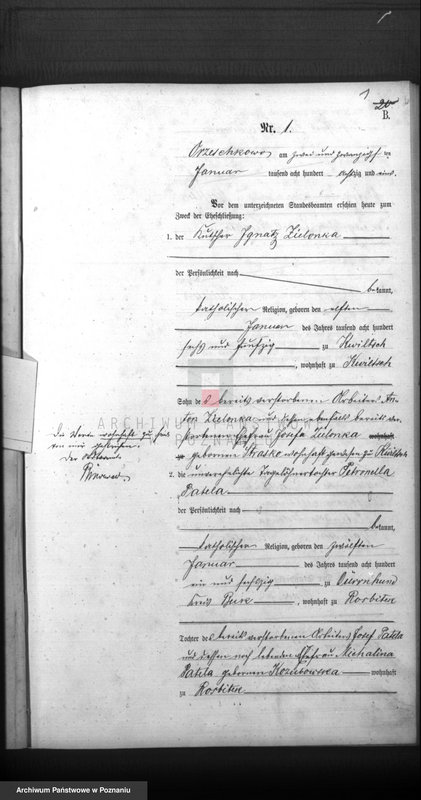 1
20
B.
Nr. 1.
Orzeschkowo am zwei und zwanzigsten
Januar tausend acht hundert achtzig und eins.
Vor dem unterzeichneten Standesbeamten erschien heute zum
Zweck der Eheschließung:
1. der Kutscher Ignatz Zielonka
der Persönlichkeit nach
bekannt,
katholischer Religion, geboren den elften
Januar des Jahres tausend acht hundert
sechs und fünfzig zu Kwiltsch
, wohnhaft zu Kwiltsch
Sohn des bereits verstorbenen Arbeiters An-
ton Zielonka und dessen ebenfalls bereits ver-
storbenen Ehefrau Josefa Zielonka wohnhaft
zu geborenen wohnhaft gewesen zu Kwiltsch
2. die unverehelichte Tagelöhnertochter Petronella
Patela
der Persönlichkeit nach
bekannt,
katholischer Religion, geboren den zwölften
Januar des Jahres tausend acht hundert
ein und sechszig zu
Kreis Buk , wohnhaft zu Rorbitze
Tochter des bereits verstorbenen Arbeiters Josef Patela
und dessen noch lebenden Ehefrau Michalina
Patela geborenen wohnhaft
zu Rorbitze
Die Worte wohnhaft zu sind
gestrichen.
Der
ARCHIWUM PAŃSTWOWE
W POZNANIU
Archiwum Państwowe w Poznaniu